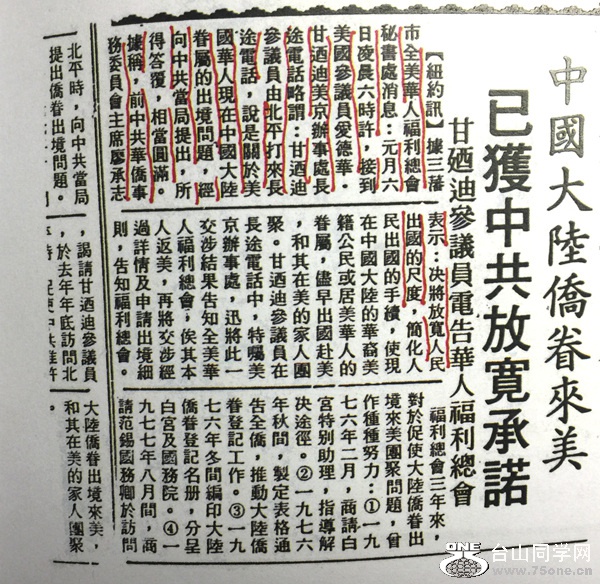 中國大陸僑眷來美
已獲中共放寬承諾
甘迺迪參議員電告華人福利總會
【紐約訊】據三藩
市全美華人福利總會
秘書處消息：元月六
日凌晨六時許，接到
美國參議員愛德華．
甘迺迪美京辦事處長
途電話略謂：甘迺迪
參議員由北平打來長
途電話，說是關於美
國華人現在中國大陸
眷屬的出境問題，經
向中共當局提出，所
得答覆，相當圓滿。
據稱，前中共華僑事
務委員會主席廖承志
表示：决將放寬人民
出國的尺度，簡化人
民出國的手續，使現
在中國大陸的華裔美
籍公民或居美華人的
眷屬，儘早出國赴美
，和其在美的家人團
聚。甘迺迪參議員在
長途電話中，特囑美
京辦事處，迅將此一
交涉結果告知全美華
人福利總會，俟其本
人返美，再將交涉經
過詳情及申請出境細
則，告知福利總會。
福利總會三年來，
對於促使大陸僑眷出
境來美團聚問題，曾
作種種努力：①一九
七六年二月，商請白
宮特別助理，指導解
决途徑。②一九七六
年秋間，製定表格通
告全僑，推動大陸僑
眷登記工作。③一九
七六年冬間編印大陸
僑眷登記名册，分呈
白宮及國務院。④一
九七七年八月間，商
請范錫國務卿於訪問
北平時，向中共當局
提出僑眷出境問題。
，謁請甘迺迪參議員
，於去年年底訪問北
大陸僑眷出境來美，
和其在美的家人團聚
。
ONE
台山同学网
www.75one.cn